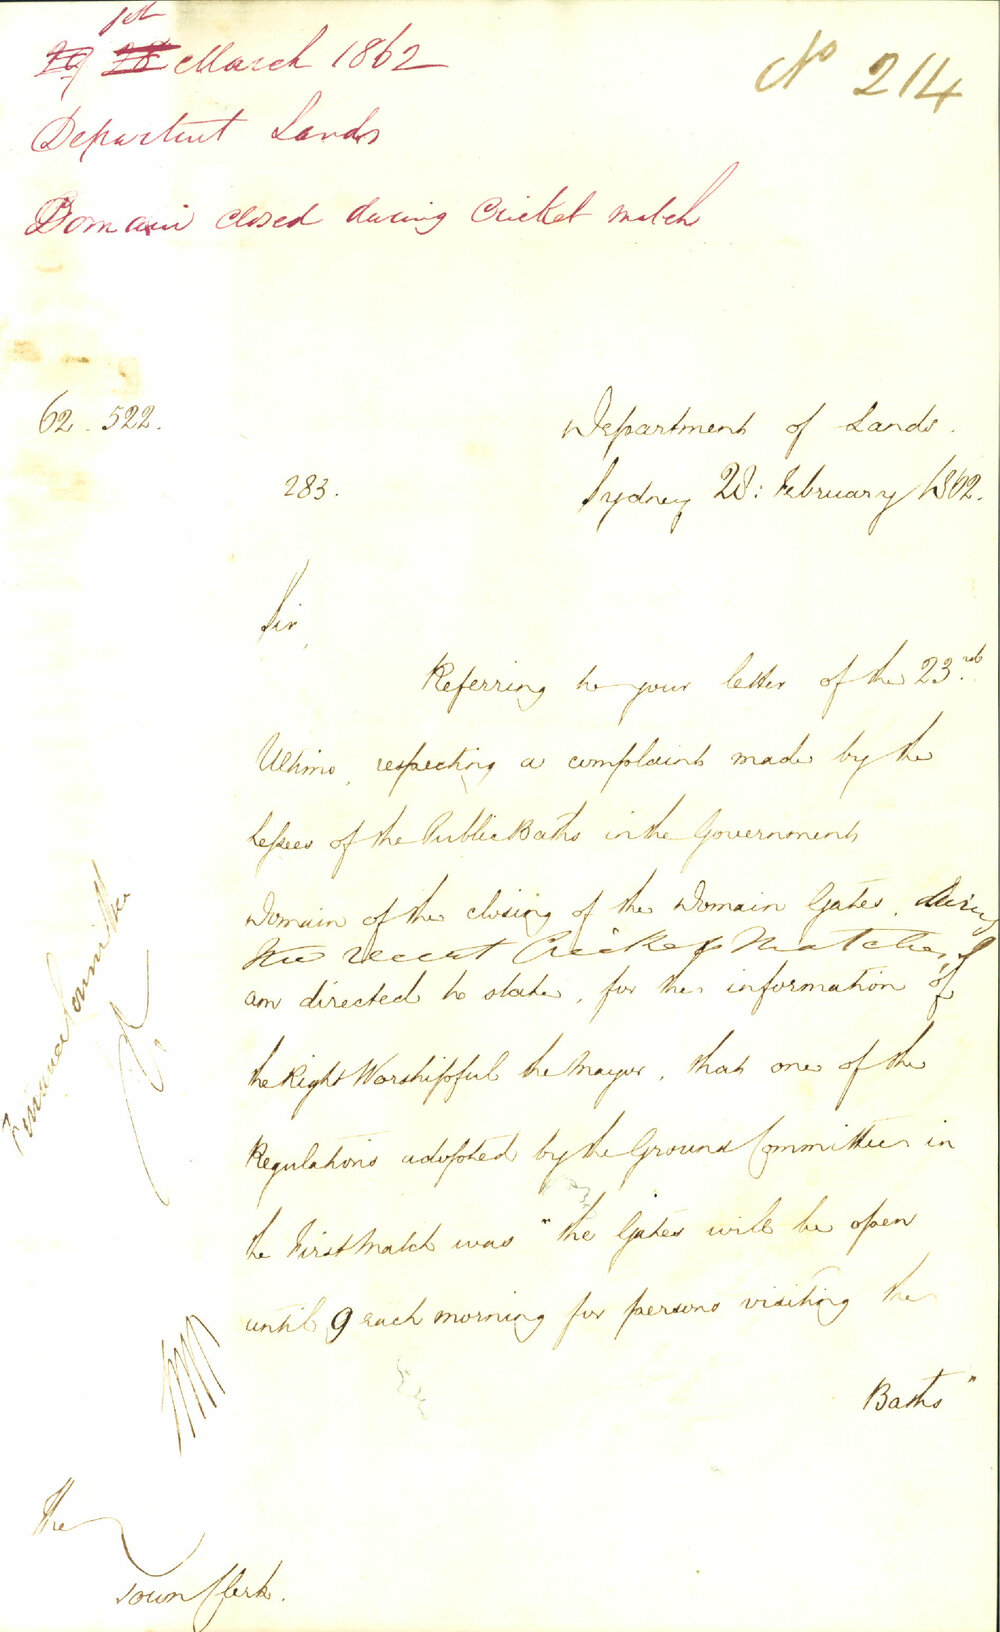 1st
29 28 March 1862
No 214
Departmt Lands
Domain closed during Cricket match
62.522.
Department of Lands.
283.
Sydney 28: February 1862.
Sir,
Referring to your letter of the 23rd
Ultimo, respecting a complaint made by the
Lessee of the Public Baths in the Government
Domain of the closing of the Domain Gates, during
the recent Cricket Matches, I
am directed to state, for the information of
the Right Worshipful the Mayor, that one of the
Regulations adopted by the Ground Committee in
the First Match was "the Gates will be open
until 9 each morning for persons visiting the
Baths"
Finance Committee
The
Town Clerk.